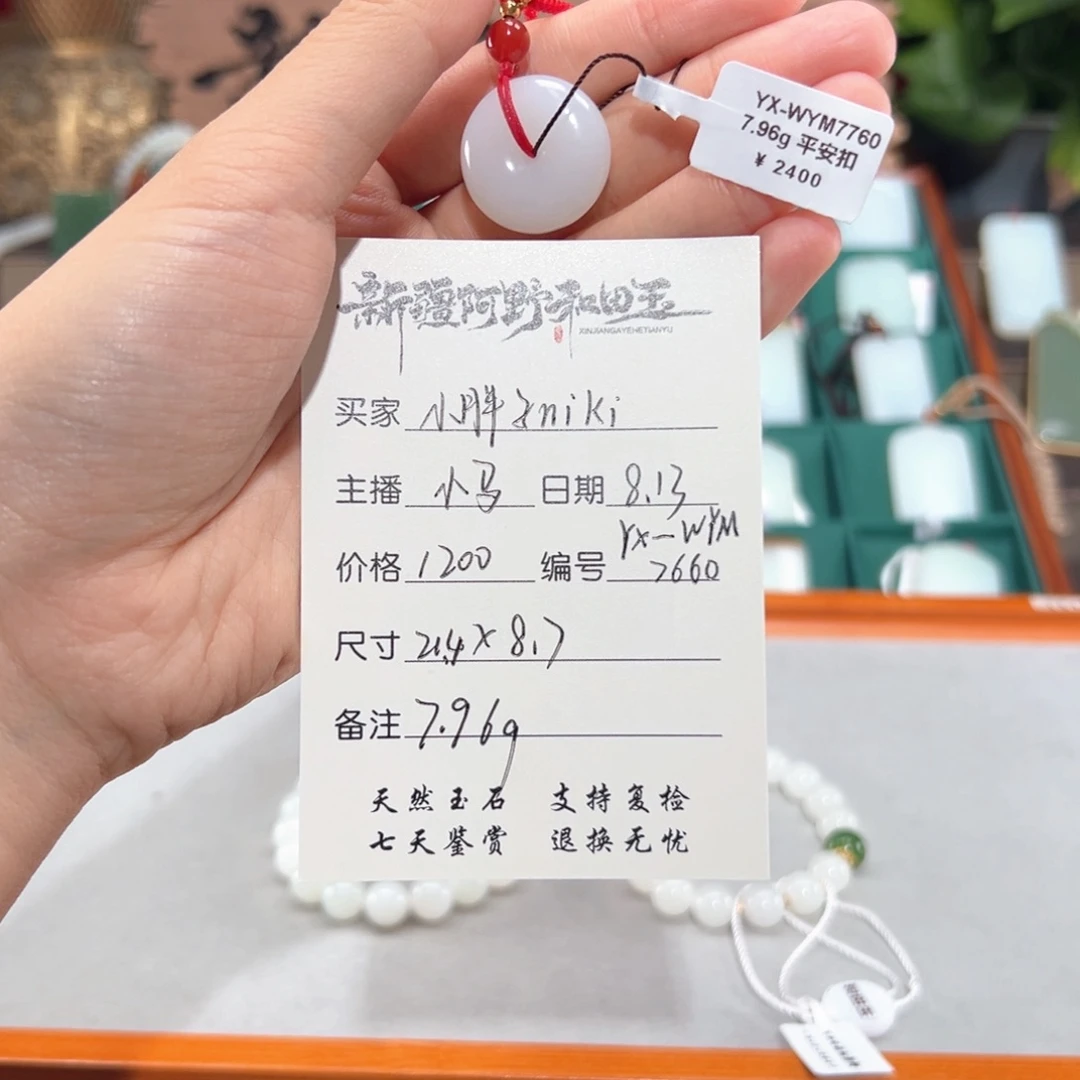 YX-WYM7760
7.96g 平安扣
¥ 2400
新疆阿野和田玉
XINJIANGAYEHETIANYU
买家 小胖子niki
主播 小马 日期 8.13
价格 1200 编号 YX-WYM
7660
尺寸 21.4×8.7
备注 7.96g
天然玉石 支持复检
七天鉴赏 退换无忧